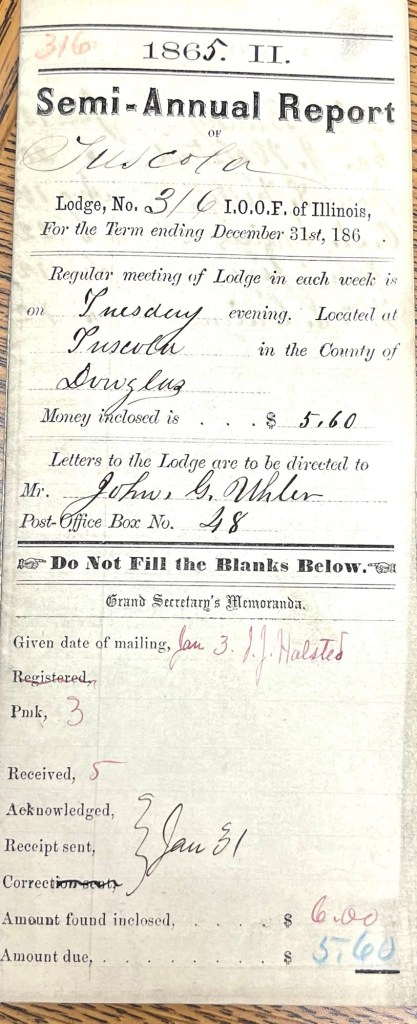 316
1865. II.
Semi-Annual Report
OF
Tuscola
Lodge, No. 316 I.O.O.F. of Illinois,
For the Term ending December 31st, 186 .
Regular meeting of Lodge in each week is
on Tuesday evening. Located at
Tuscola in the County of
Douglas
Money inclosed is . . . $ 5.60
Letters to the Lodge are to be directed to
Mr. John G. Uhler
Post-Office Box No. 48
Do Not Fill the Blanks Below.
Grand Secretary's Memoranda.
Given date of mailing, Jan 3. J. J. Halsted
Registered,
Pmk, 3
Received, 5
Acknowledged,
Receipt sent, Jan 31
Correction sent,
Amount found inclosed, . . . . $ 6.00
Amount due, . . . . . . . . $ 5.60